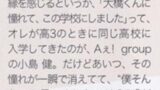 縁を感じるというか、「大橋くんに
憧れて、この学校にしました」って、
オレが高3のときに同じ高校に
入学してきたのが、Aぇ! group
の小島 健。だけどあいつ、その
憧れが一瞬で消えてて、“僕そん